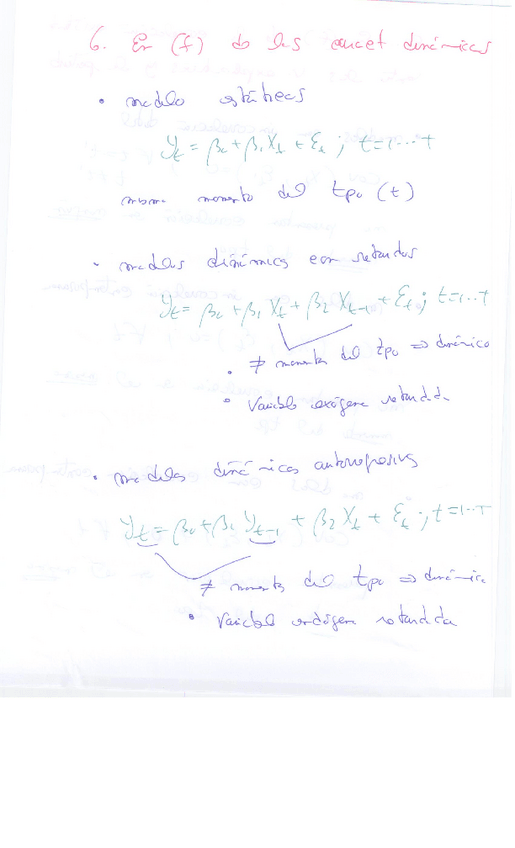 6. En (f) de las caract dinámicas
• modelo estáticos
Yt = β0 + β1 Xt + Et ; t=1...T
mismo momento del tpo (t)
• modelos dinámicos con retardos
Yt = β0 + β1 Xt + β2 Xt-1 + Et ; t=1...T
• ≠ momentos del tpo ⇒ dinámico
• Variable exógena retardada
• modelos dinámicos autorregresivos
Yt = β0 + β1 Yt-1 + β2 Xt + Et ; t=1...T
≠ momentos del tpo ⇒ dinámico
• Variable endógena retardada